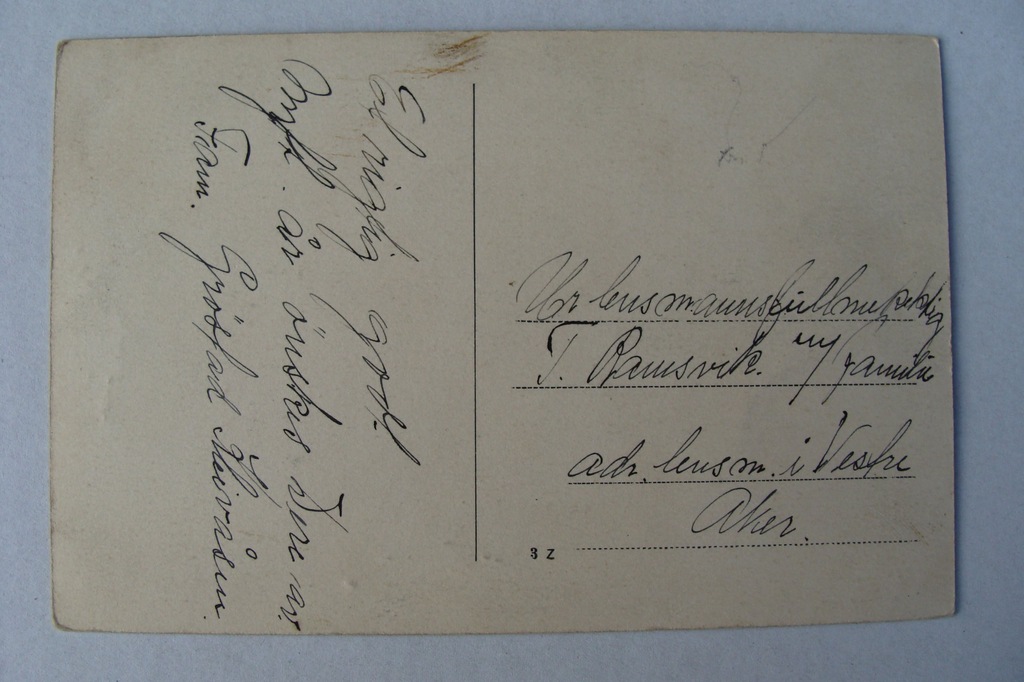 Et rigtig godt
Nytt. år önskes Dere av
Fam. Gröstad Kleivåsen.
Hr lensmannsfullmektig
T. Ramsvik. m/familie
adr. lensm. i Vestre
Aker.
3 Z